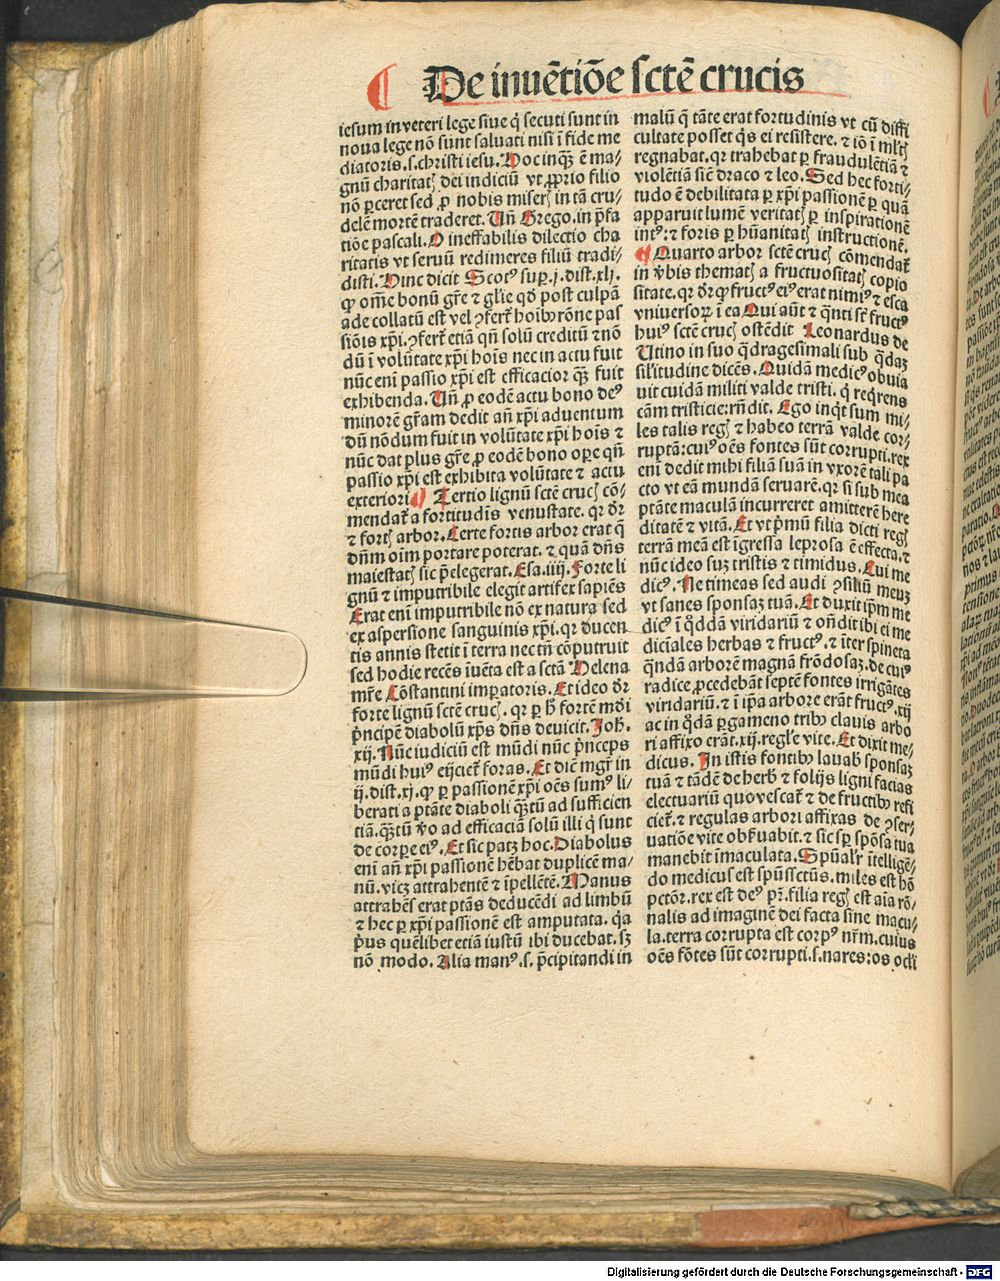 De inuẽtiõe sctẽ crucis
iesum in veteri lege siue q̇ secuti sunt in
noua lege nõ sunt saluati nisi ĩ fide me
diatoris.s.christi iesu. Hoc inqꝫ ẽ ma⸗
gnũ charitatꝭ dei indiciũ vt ꝓprio filio
nõ ꝑceret sed ꝓ nobis miserꝭ in tã cru⸗
delẽ mortẽ traderet. Uñ Grego. in p̃fa
tiõe pascali. O ineffabilis dilectio cha
ritatis vt seruũ redimeres filiũ tradi⸗
disti. Hinc dicit Scotꝰ suꝑ.j.dist.xlj.
ꝙ om̃e bonũ gr̃e ⁊ gl̃ie qđ post culpã
ade collatũ est vel ꝯfert̃ hoĩbꝰ rõne pas
siõis xp̃i. ꝯfert̃ etiã qñ solũ creditũ ⁊ nõ
dũ ĩ volũtate xp̃i hoĩs nec in actu fuit
nũc eni passio xp̃i est efficacior qꝫ fuit
exhibenda. Uñ ꝓ eodẽ actu bono deꝰ
minorẽ gr̃am dedit añ xp̃i aduentum
dũ nõdum fuit in volũtate xp̃i hoĩs ⁊
nũc dat plus gr̃e ꝓ eodẽ bono oꝑe qñ
passio xp̃i est exhibita volũtate ⁊ actu
exteriori ¶ Tertio lignũ sctẽ crucꝭ cõ⸗
mendat̃ a fortitudĩs venustate. qꝛ dr̃
⁊ fortꝭ arbor. Certe fortis arbor erat q̃
dñm oĩm portare poterat. ⁊ quã dñs
maiestatꝭ sic p̃elegerat. Esa.iiij. Forte li
gnũ ⁊ imputribile elegit artifex sapiẽs
Erat eni imputribile nõ ex natura sed
ex aspersione sanguinis xp̃i. qꝛ ducen
tis annis stetit ĩ terra nec tñ cõputruit
sed hodie recẽs iuẽta est a sctã Helena
mr̃e Cõstantini imꝑatoris. Et ideo dr̃
forte lignũ sctẽ crucꝭ. qꝛ ꝑ ħ fortẽ mũdi
p̃ncipẽ diabolũ xp̃s dñs deuicit. Joh̃.
xij. Nũc iudiciũ est mũdi nũc p̃nceps
mũdi huiꝰ eijciet̃ foras. Et dicit̃ mgr̃ in
ij.dist.xj. ꝙ ꝑ passionẽ xp̃i oẽs sumꝰ li⸗
berati a p̃tate diaboli qꝫtũ ad sufficien
tiã. qꝫtũ v̊o ad efficaciã solũ illi q̇ sunt
de corꝑe eiꝰ. Et sic patꝫ hoc. Diabolus
eni añ xp̃i passionẽ hẽbat duplicẽ ma⸗
nũ. vicꝫ attrahentẽ ⁊ ĩpellẽtẽ. Manus
attrahẽs erat ptãs deducẽdi ad limbũ
⁊ hec ꝑ xp̃i passionẽ est amputata. q̇a
p̃us quẽlibet etiã iustũ ibi ducebat. sꝫ
nõ modo. Alia manꝰ.s. p̃cipitandi in
malũ q̃ tãte erat fortudinis vt cũ diffi
cultate posset q̃s ei resistere. ⁊ iõ ĩ ml̃tꝭ
regnabat. qꝛ trahebat ꝑ fraudulẽtiã ⁊
violẽtiã sicut draco ⁊ leo. Sed hec forti⸗
tudo ẽ debilitata ꝑ xp̃i passionẽ ꝑ quã
apparuit lumẽ veritatꝭ ꝑ inspirationẽ
intꝰ: ⁊ foris ꝑ hũanitatꝭ instructionẽ.
¶ Quarto arbor sctẽ crucꝭ cõmendat̃
in v̊bis thematꝭ a fructuositatꝭ copio
sitate. qꝛ dr̃ ꝙ fructꝰ eiꝰ erat nimiꝰ ⁊ esca
vniuersoꝝ ĩ ea Qui aũt ⁊ q̃nti sĩt fructꝰ
huiꝰ sctẽ crucꝭ ostẽdit Leonardus de
Utino in suo q̃dragesimali sub q̃daꝫ
sil̃itudine dicẽs. Quidã medicꝰ obuia
uit cuidã militi valde tristi. q̇ req̇rens
cãm tristicie: rñdit. Ego inq̇t sum mi⸗
les talis regꝭ ⁊ habeo terrã valde cor⸗
ruptã: cuiꝰ oẽs fontes sũt corrupti. rex
eni dedit mihi filiã suã in vxorẽ tali pa
cto vt eã mundã seruarẽ. qꝛ si sub mea
ptãte maculã incurreret amitterẽ here
ditatẽ ⁊ vitã. Et vt p̃mũ filia dicti regꝭ
terrã meã est ĩgressa leprosa ẽ effecta. ⁊
nũc ideo suꝫ tristis ⁊ timidus. Cui me
dicꝰ. Ne timeas sed audi ꝯsiliũ meuꝫ
vt sanes sponsaꝫ tuã. Et duxit ip̃m me
dicꝰ ĩ q̇ddã viridariũ ⁊ oñdit ibi ei me
dicĩales herbas ⁊ fructꝰ. ⁊ ĩter spineta
q̃ndã arborẽ magnã frõdosaꝫ. de cuiꝰ
radice ꝓcedebãt septẽ fontes irrigãtes
viridariũ. ⁊ ĩ ip̃a arbore erãt fructꝰ.xij
ac in q̇dã ꝑgameno tribꝰ clauis arbo
ri affixo erãt.xij. regl̃e vite. Et dixit me⸗
dicus. In istis fontibꝰ lauabꝭ sponsaꝫ
tuã ⁊ tãdẽ de herbꝭ ⁊ folijs ligni facias
electuariũ quo vescat̃ ⁊ de fructibꝰ refi
ciet̃. ⁊ regulas arbori affixas de ꝯser⸗
uatiõe vite obẜuabit. ⁊ sic sꝑ spõsa tua
manebit ĩmaculata. Spũal̃r ĩtelligẽ⸗
do medicus est spũssctũs. miles est hõ
pctõꝛ. rex est deꝰ pr̃. filia regꝭ est aĩa rõ⸗
nalis ad imaginẽ dei facta sine macu⸗
la. terra corrupta est corpꝰ nr̃m. cuius
oẽs fõtes sũt corrupti.s.nares: os ocl̃i
Digitalisierung gefördert durch die Deutsche Forschungsgemeinschaft - DFG